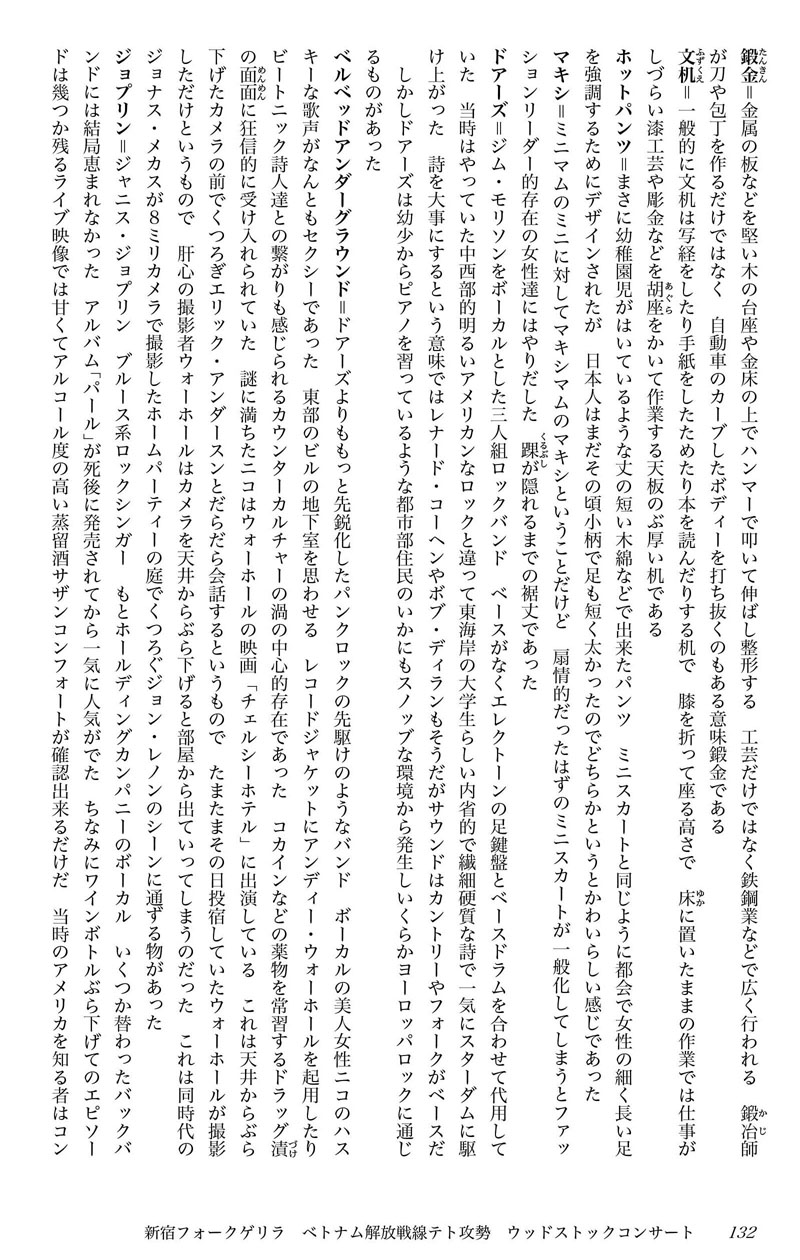 鍛金＝金属の板などを堅い木の台座や金床の上でハンマーで叩いて伸ばし整形する　工芸だけではなく鉄鋼業などで広く行われる　鍛冶師
が刀や包丁を作るだけではなく　自動車のカーブしたボディーを打ち抜くのもある意味鍛金である
文机＝一般的に文机は写経をしたり手紙をしたためたり本を読んだりする机で　膝を折って座る高さで　床に置いたままの作業では仕事が
しづらい漆工芸や彫金などを胡座をかいて作業する天板のぶ厚い机である
ホットパンツ＝まさに幼稚園児がはいているような丈の短い木綿などで出来たパンツ　ミニスカートと同じように都会で女性の細く長い足
を強調するためにデザインされたが　日本人はまだその頃小柄で足も短く太かったのでどちらかというとかわいらしい感じであった
マキシ＝ミニマムのミニに対してマキシマムのマキシということだけど　扇情的だったはずのミニスカートが一般化してしまうとファッ
ションリーダー的存在の女性達にはやりだした　踝が隠れるまでの裾丈であった
ドアーズ＝ジム・モリソンをボーカルとした三人組ロックバンド　ベースがなくエレクトーンの足鍵盤とベースドラムを合わせて代用して
いた　当時はやっていた中西部的明るいアメリカンなロックと違って東海岸の大学生らしい内省的で繊細硬質な詩で一気にスターダムに駆
け上がった　詩を大事にするという意味ではレナード・コーヘンやボブ・ディランもそうだがサウンドはカントリーやフォークがベースだ
　しかしドアーズは幼少からピアノを習っているような都市部住民のいかにもスノッブな環境から発生しいくらかヨーロッパロックに通じ
るものがあった
ベルベッドアンダーグラウンド＝ドアーズよりももっと先鋭化したパンクロックの先駆けのようなバンド　ボーカルの美人女性ニコのハス
キーな歌声がなんともセクシーであった　東部のビルの地下室を思わせる　レコードジャケットにアンディー・ウォーホールを起用したり
ビートニック詩人達との繋がりも感じられるカウンターカルチャーの渦の中心的存在であった　コカインなどの薬物を常習するドラッグ漬
の面面に狂信的に受け入れられていた　謎に満ちたニコはウォーホールの映画「チェルシーホテル」に出演している　これは天井からぶら
下げたカメラの前でくつろぎエリック・アンダースンとだらだら会話するというもので　たまたまその日投宿していたウォーホールが撮影
しただけというもので　肝心の撮影者ウォーホールはカメラを天井からぶら下げると部屋から出ていってしまうのだった　これは同時代の
ジョナス・メカスが８ミリカメラで撮影したホームパーティーの庭でくつろぐジョン・レノンのシーンに通ずる物があった
ジョプリン＝ジャニス・ジョプリン　ブルース系ロックシンガー　もとホールディングカンパニーのボーカル　いくつか替わったバックバ
ンドには結局恵まれなかった　アルバム「パール」が死後に発売されてから一気に人気がでた　ちなみにワインボトルぶら下げてのエピソー
ドは幾つか残るライブ映像では甘くてアルコール度の高い蒸留酒サザンコンフォートが確認出来るだけだ　当時のアメリカを知る者はコン
新宿フォークゲリラ　ベトナム解放戦線テト攻勢　ウッドストックコンサート　132